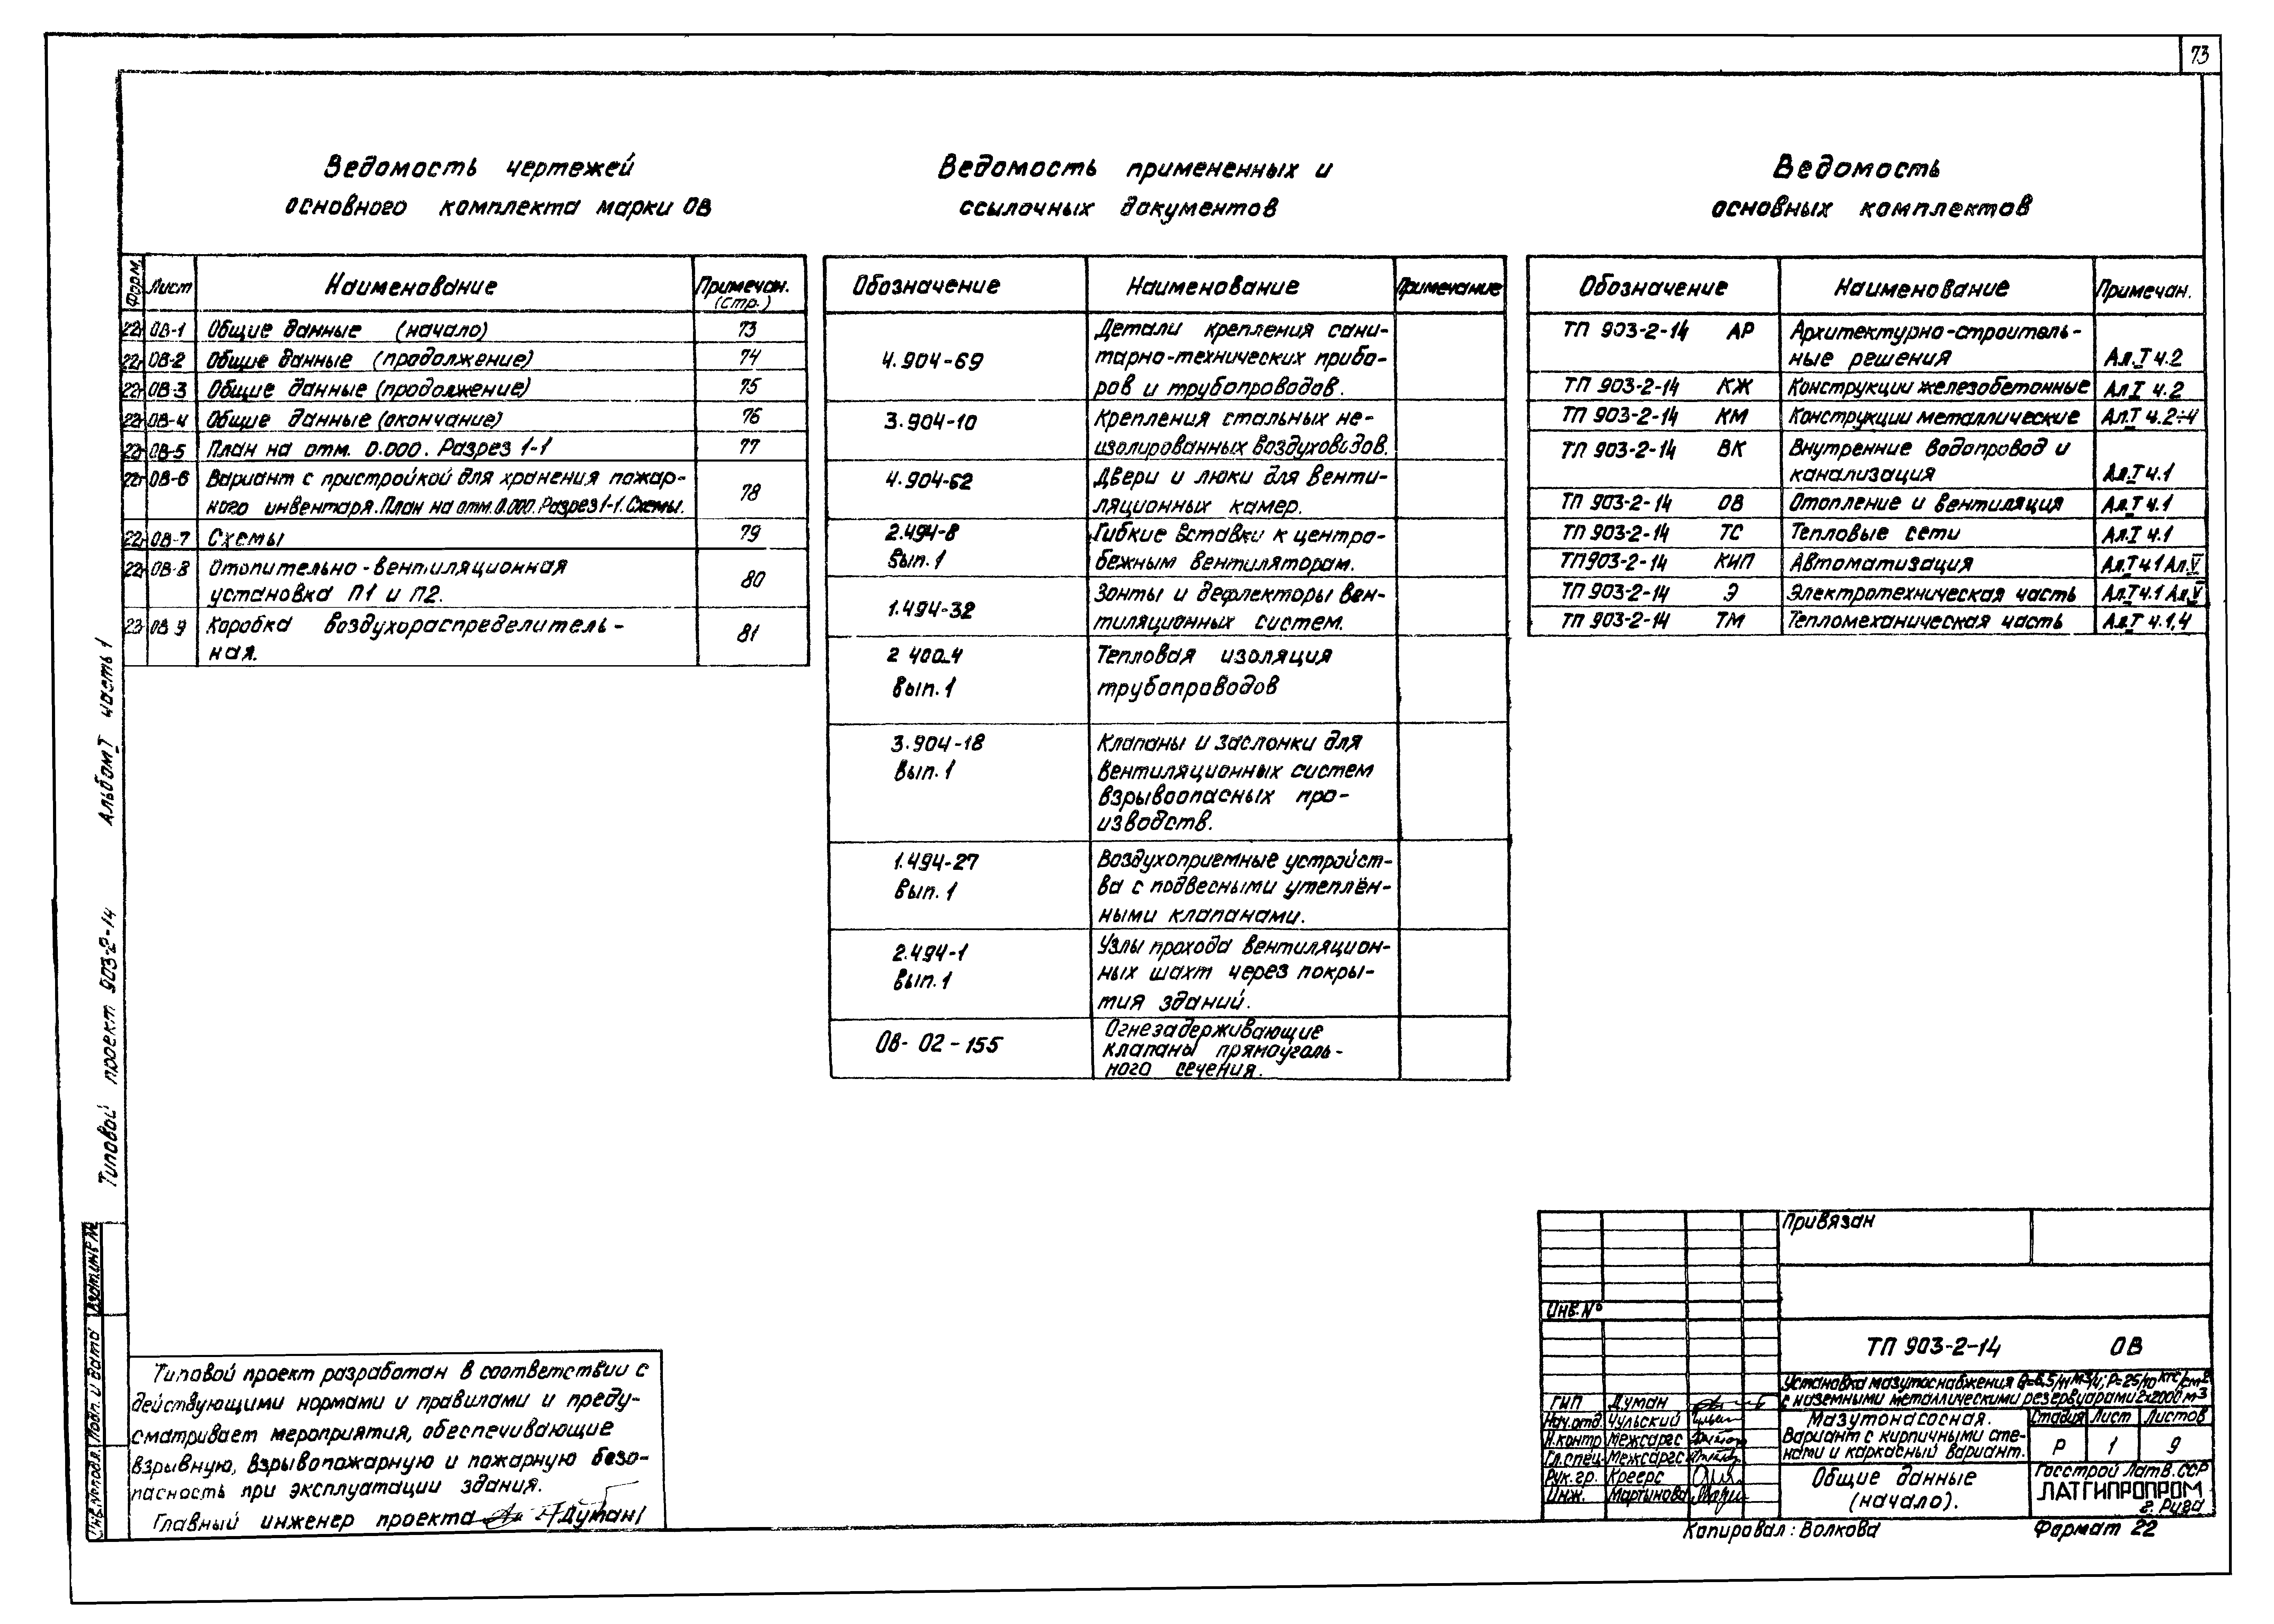 73
Ведомость чертежей
основного комплекта марки ОВ
Форм. Лист Наименование Примечан. (стр.)
22 ОВ-1 Общие данные (начало) 73
22 ОВ-2 Общие данные (продолжение) 74
22 ОВ-3 Общие данные (продолжение) 75
22 ОВ-4 Общие данные (окончание) 76
22 ОВ-5 План на отм. 0.000. Разрез 1-1 77
22 ОВ-6 Вариант с пристройкой для хранения пожар-
ного инвентаря. План на отм. 0.000. Разрез 1-1. Схемы. 78
22 ОВ-7 Схемы 79
22 ОВ-8 Отопительно-вентиляционная
установка П1 и П2. 80
22 ОВ 9 Коробка воздухораспределитель-
ная. 81
Ведомость примененных и
ссылочных документов
Обозначение Наименование Примечание
4.904-69 Детали крепления сани-
тарно-технических прибо-
ров и трубопроводов.
3.904-10 Крепления стальных не-
изолированных воздуховодов.
4.904-62 Двери и люки для венти-
ляционных камер.
2.494-8 Гибкие вставки к центро-
Вып. 1 бежным вентиляторам.
1.494-32 Зонты и дефлекторы вен-
тиляционных систем.
2 400-4 Тепловая изоляция
Вып. 1 трубопроводов
3.904-18 Клапаны и заслонки для
Вып. 1 вентиляционных систем
взрывоопасных про-
изводств.
1.494-27 Воздухоприемные устройст-
Вып. 1 ва с подвесными утеплён-
ными клапанами.
2.494-1 Узлы прохода вентиляцион-
Вып. 1 ных шахт через покры-
тия зданий.
ОВ- 02-155 Огнезадерживающие
клапаны прямоуголь-
ного сечения.
Ведомость
основных комплектов
Обозначение Наименование Примечан.
ТП 903-2-14 АР Архитектурно-строитель-
ные решения Ал.I ч.2
ТП 903-2-14 КЖ Конструкции железобетонные Ал I ч.2
ТП 903-2-14 КМ Конструкции металлические Ал.I ч.2÷4
ТП 903-2-14 ВК Внутренние водопровод и
канализация Ал.I ч.1
ТП 903-2-14 ОВ Отопление и вентиляция Ал.I ч.1
ТП 903-2-14 ТС Тепловые сети Ал.I ч.1
ТП 903-2-14 КИП Автоматизация Ал.I ч.1 Ал.V
ТП 903-2-14 Э Электротехническая часть Ал.I ч.1 Ал.V
ТП 903-2-14 ТМ Тепломеханическая часть Ал.I ч.1,4
Типовой проект 903-2-14 Альбом I часть 1
Инв.№подл. Подп. и дата Взам.инв.№
Типовой проект разработан в соответствии с
действующими нормами и правилами и преду-
сматривает мероприятия, обеспечивающие
взрывную, взрывопожарную и пожарную безо-
пасность при эксплуатации здания.
Главный инженер проекта /Думан/
Привязан
Инв.№
ТП 903-2-14 ОВ
Установка мазутоснабжения Q=6,5/11 м3/ч, Р=25/10 кгс/см2
с наземными металлическими резервуарами 2х2000 м3
ГИП Думан
Нач.отд. Чульский
Н.контр Межсаргс
Гл.спец. Межсаргс
Рук.гр. Креерс
Инж. Мартынова
Мазутонасосная.
Вариант с кирпичными сте-
нами и каркасный вариант.
Стадия Лист Листов
Р 1 9
Общие данные
(начало).
Госстрой Латв.ССР
ЛАТГИПРОПРОМ
г. Рига
Копировал: Волкова Формат 22